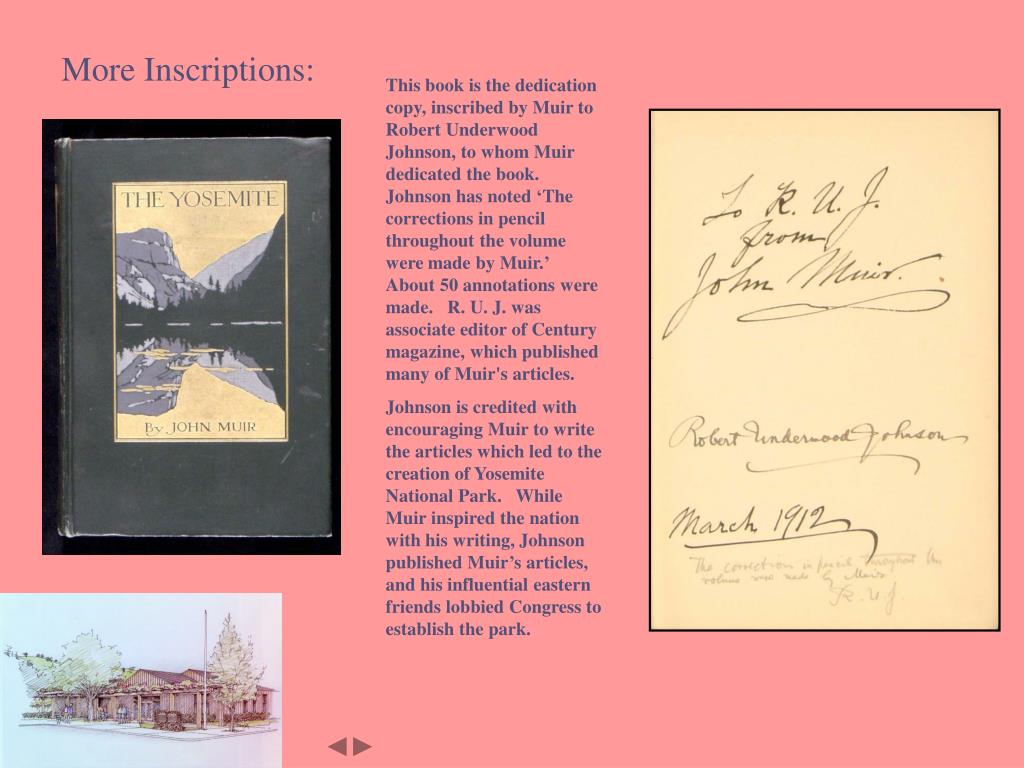 More Inscriptions:
THE YOSEMITE
By JOHN MUIR
This book is the dedication
copy, inscribed by Muir to
Robert Underwood
Johnson, to whom Muir
dedicated the book.
Johnson has noted ‘The
corrections in pencil
throughout the volume
were made by Muir.’
About 50 annotations were
made.   R. U. J. was
associate editor of Century
magazine, which published
many of Muir's articles.
Johnson is credited with
encouraging Muir to write
the articles which led to the
creation of Yosemite
National Park.   While
Muir inspired the nation
with his writing, Johnson
published Muir’s articles,
and his influential eastern
friends lobbied Congress to
establish the park.
To R. U. J.
from
John Muir.
Robert Underwood Johnson
March 1912
The corrections in pencil throughout the
volume were made by Muir
R. U. J.